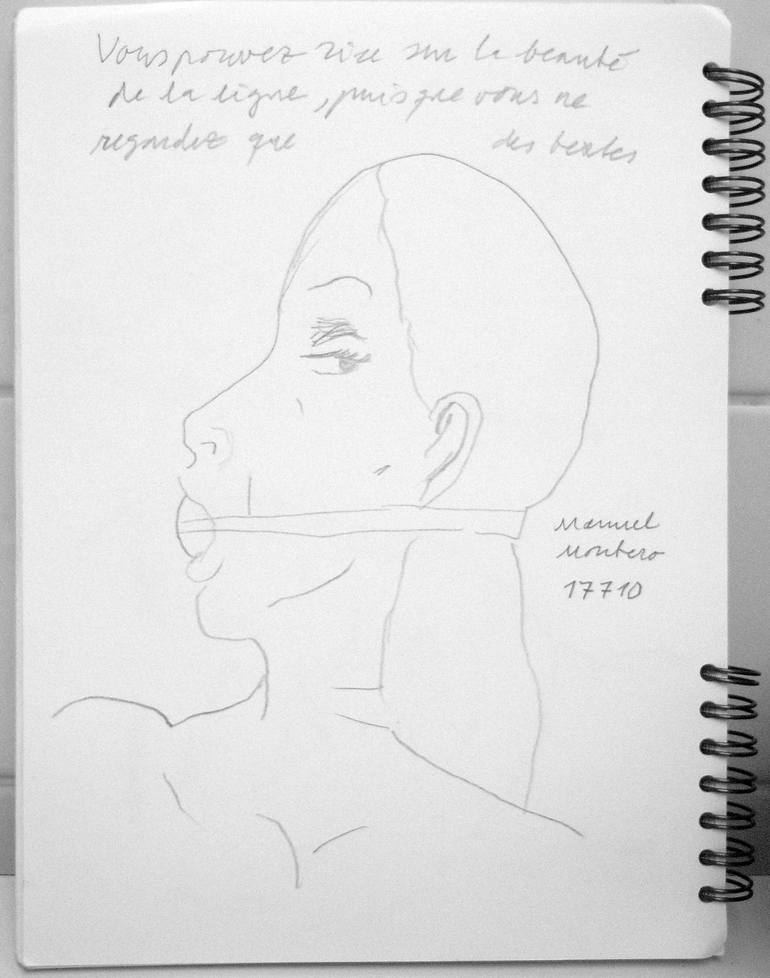 Vous pouvez rire sur la beauté
de la ligne, puisque vous ne
regardez que des textes
Manuel
Montero
17710